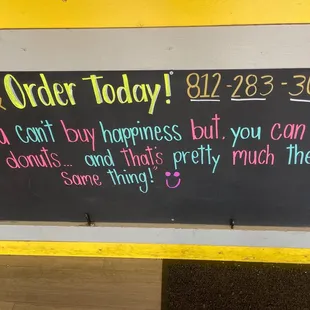 Order Today! 812-283-3
can't buy happiness but, you can
donuts... and that's pretty much the
same thing!"